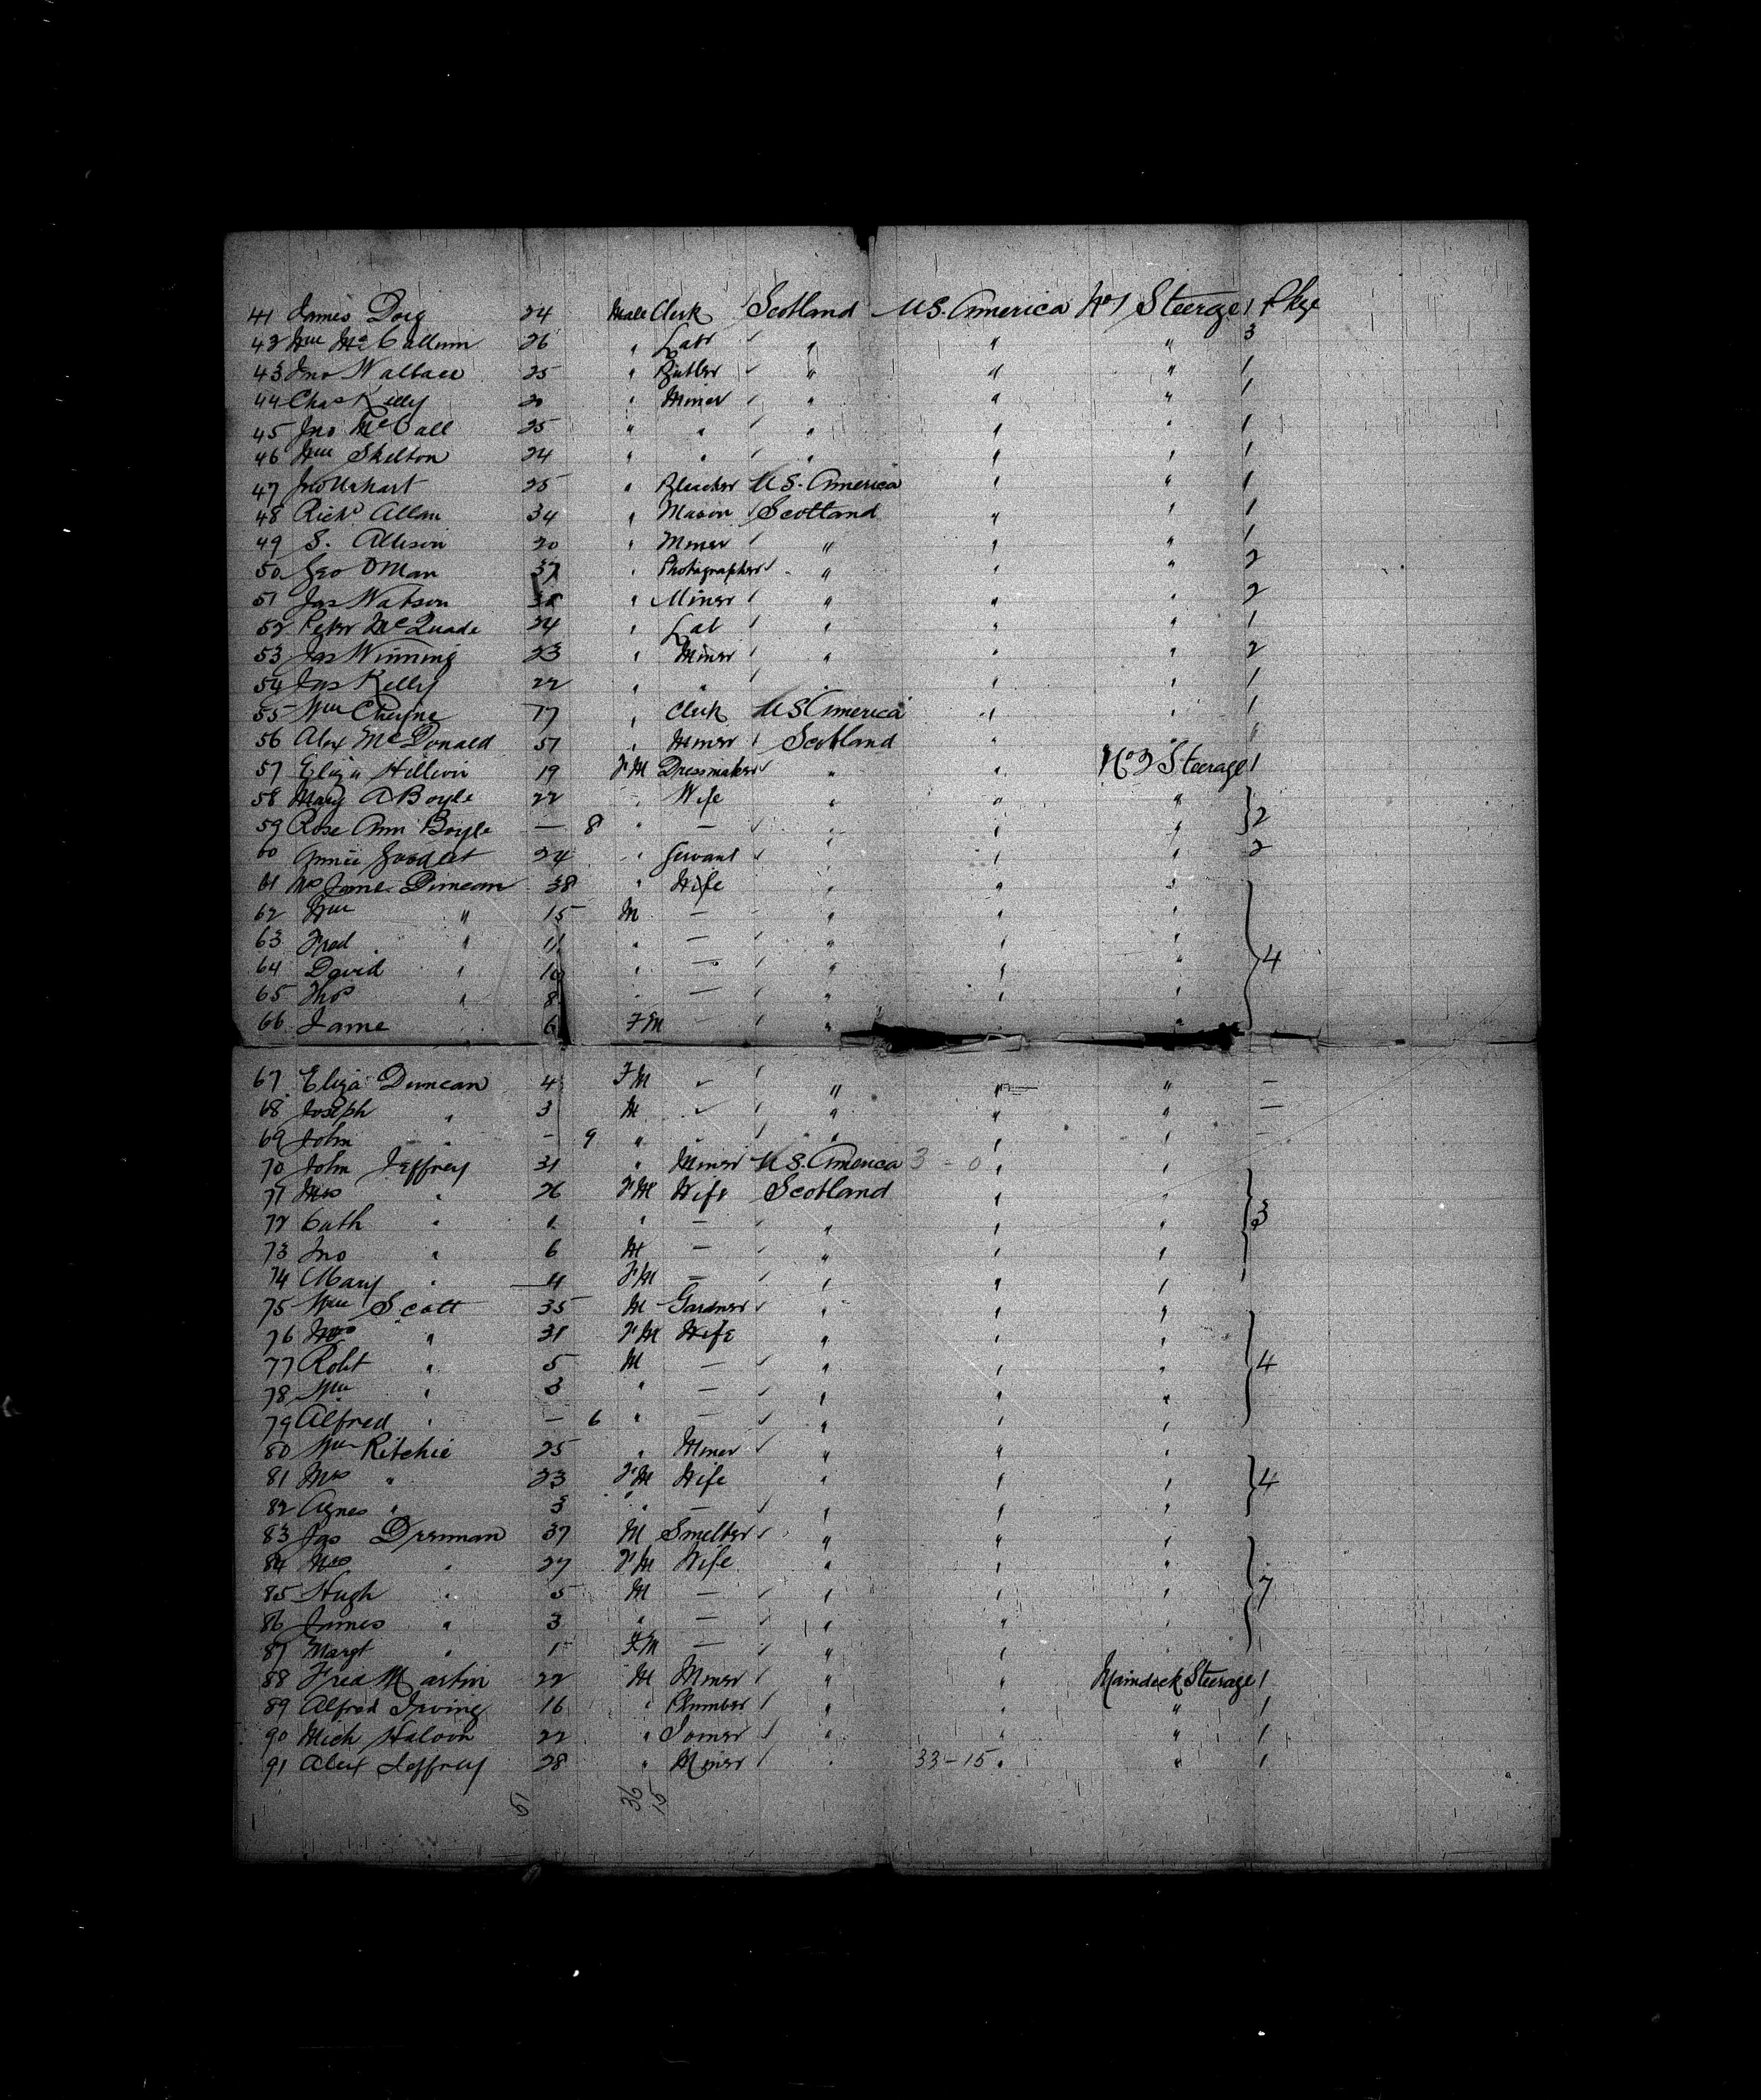 41 James Doig 24 Male Clerk Scotland U.S. America No 1 Steerage 1 Pkge
42 Wm McCallum 26 " Labr " " " 3
43 Jno Wallace 25 " Butler " " " 1
44 Chas Kelly 20 " Miner " " " 1
45 Jno McCall 25 " " " " " 1
46 Wm Skelton 24 " " " " " 1
47 Jno Urhart 25 " Bleacher U.S. America " " 1
48 Richd Allan 34 " Mason Scotland " " 1
49 S. Allison 20 " Miner " " " 1
50 Geo Oman 37 " Photographer " " " 2
51 Jas Watson " Miner " " " 2
52 Peter McQuade 24 " Lab " " " 1
53 Jas Winning 23 " Miner " " " 2
54 Jas Kelly 22 " " " " " 1
55 Wm Cheyne 17 " Clerk U.S America " " 1
56 Alex McDonald 51 " Miner Scotland " " "
57 Eliza 19 F'M Dressmaker " " No 2 Steerage 1
58 Mary A Boyle 22 " Wife " " "
59 Rose Ann Boyle — 8 " — " " " 2
60 Annie Goodlet 24 " Servant " " " 2
61 Mrs Jane Duncan 38 " Wife " " "
62 Wm " 15 M — " " "
63 Fred " 11 " — " " "
64 David " 10 " — " " " 4
65 Thos " 8 " — " " "
66 Jane 6 FM — " " "
67 Eliza Duncan 4 FM " " " —
68 Joseph " 3 M " " " —
69 John " — 9 " " " " —
70 John Jeffrey 31 " Miner U.S. America 3 - 0 " "
71 Mrs " 26 F'M Wife Scotland " "
72 Cath " " — " " " 3
73 Jno " 6 M — " " "
74 Mary " 4 F'M — " " "
75 Wm Scott 35 M Gardner " " "
76 Mrs " 31 F'M Wife " " "
77 Robt " 5 M — " " " 4
78 Wm " 3 " — " " "
79 Alfred " — 6 " — " " "
80 Wm Ritchie 25 " Miner " " "
81 Mrs " 23 F'M Wife " " " 4
82 Agnes " 3 " — " " "
83 Jas Drennan 37 M Smelter " " "
84 Mrs " 27 F'M Wife " " "
85 Hugh " 5 M — " " " 7
86 James " 3 " — " " "
87 Margt " 1 FM — " " "
88 Fred Martin 22 M Miner " " Maindeck Steerage 1
89 Alfred Irving 16 " Plumber " " " 1
90 Mich 22 " Joiner " " " 1
91 Alex Jeffrey 28 " Miner " 33 - 15 " " 1
51 36 15